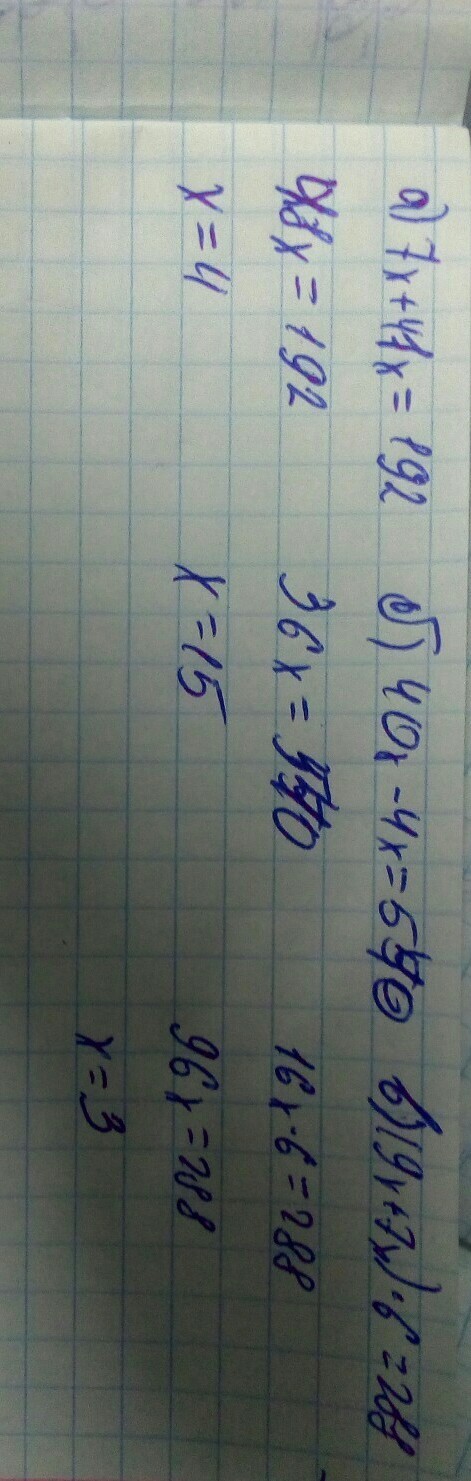 а) 7x+41x=192
48x=192
x=4
б) 40x-4x=540
36x=540
x=15
в) (9x+7x)·6=288
16x·6=288
96x=288
x=3